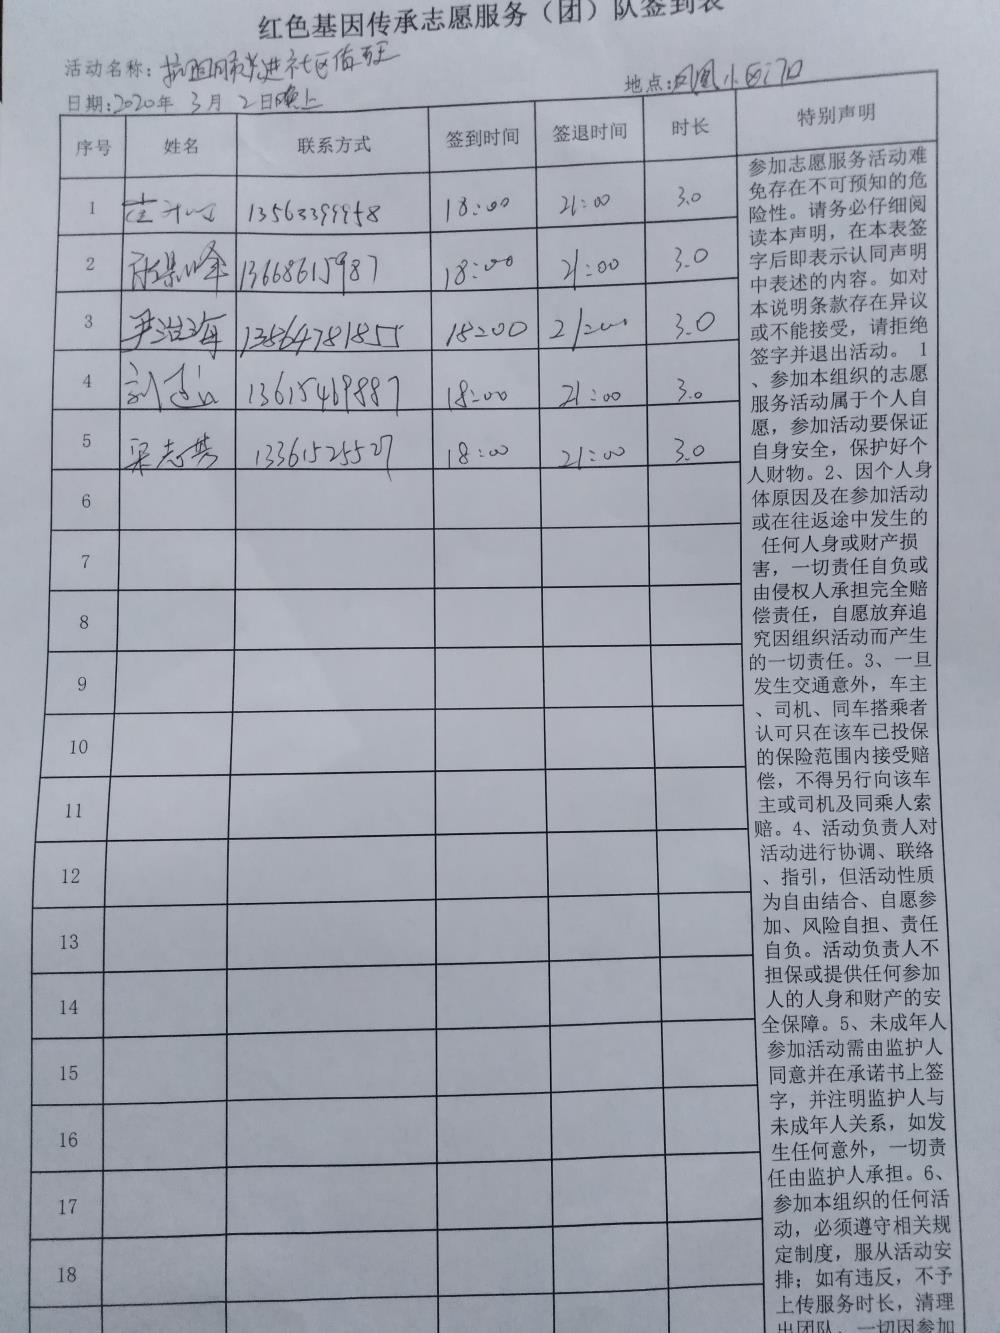 红色基因传承志愿服务（团）队签到表
活动名称：抗击肺炎进社区值班
日期：2020年 3月 2日晚上
地点：凤凰小区门口
序号 姓名 联系方式 签到时间 签退时间 时长 特别声明
1 13563399958 18:00 21:00 3.0
2 峰 13668615987 18:00 21:00 3.0
3 尹治海 13864781855 18:00 21:00 3.0
4 刘 13615469887 18:00 21:00 3.0
5 梁志 13361525527 18:00 21:00 3.0
6
7
8
9
10
11
12
13
14
15
16
17
18
参加志愿服务活动难
免存在不可预知的危
险性。请务必仔细阅
读本声明，在本表签
字后即表示认同声明
中表述的内容。如对
本说明条款存在异议
或不能接受，请拒绝
签字并退出活动。 1
、参加本组织的志愿
服务活动属于个人自
愿，参加活动要保证
自身安全，保护好个
人财物。2、因个人身
体原因及在参加活动
或在往返途中发生的
任何人身或财产损
害，一切责任自负或
由侵权人承担完全赔
偿责任，自愿放弃追
究因组织活动而产生
的一切责任。3、一旦
发生交通意外，车主
、司机、同车搭乘者
认可只在该车已投保
的保险范围内接受赔
偿，不得另行向该车
主或司机及同乘人索
赔。4、活动负责人对
活动进行协调、联络
、指引，但活动性质
为自由结合、自愿参
加、风险自担、责任
自负。活动负责人不
担保或提供任何参加
人的人身和财产的安
全保障。5、未成年人
参加活动需由监护人
同意并在承诺书上签
字，并注明监护人与
未成年人关系，如发
生任何意外，一切责
任由监护人承担。6、
参加本组织的任何活
动，必须遵守相关规
定制度，服从活动安
排；如有违反，不予
上传服务时长，清理
出团队。一切因参加